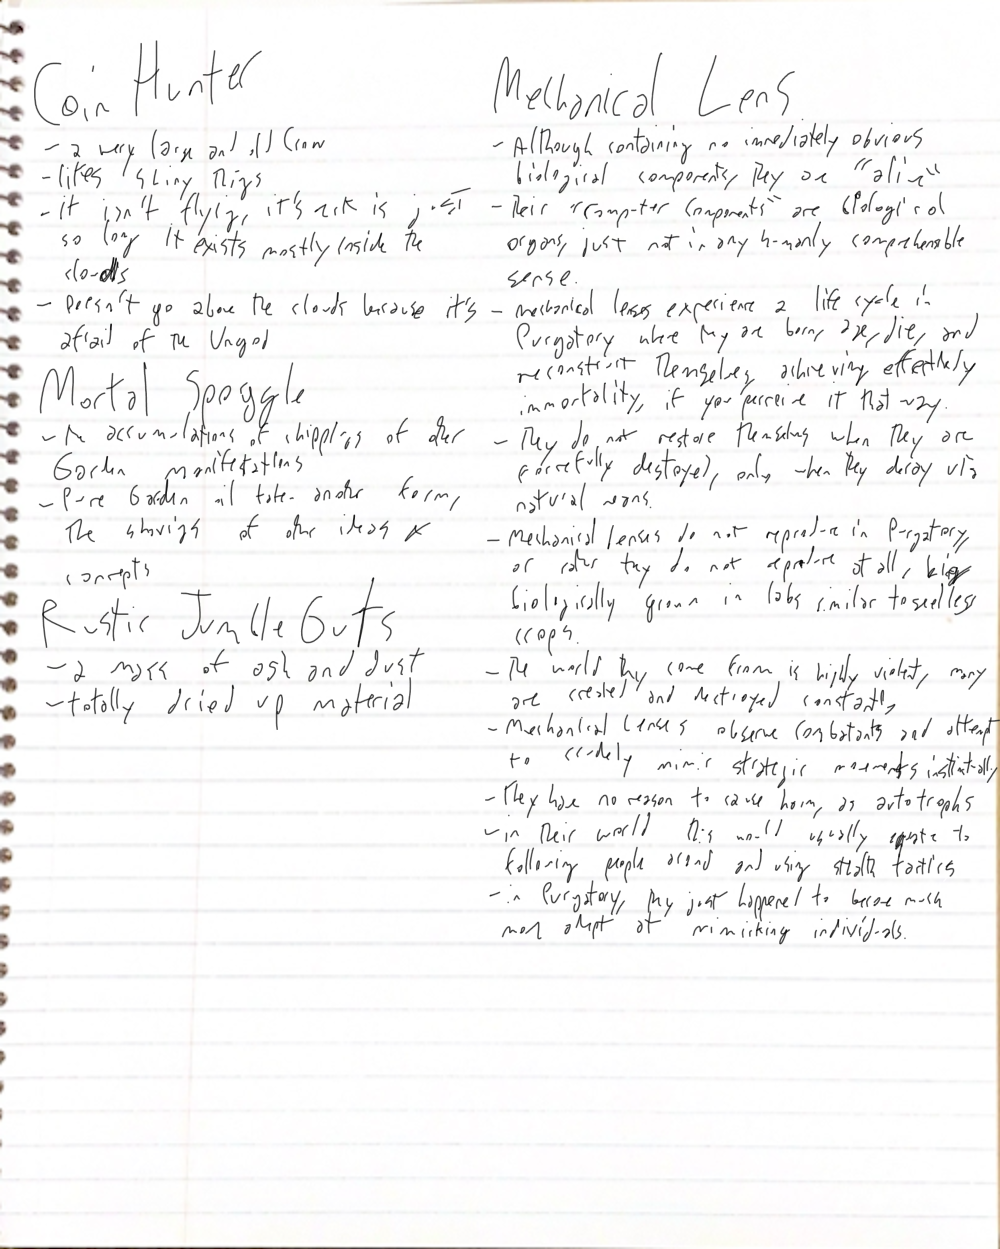 Coin Hunter
- a very large and old Crow
- likes shiny things
- it isn't flying, it's neck is just
so long it exists mostly inside the
clouds
- Doesn't go above the clouds because it's
afraid of the Ungod
Mortal Spoggle
- An accumulations of chippings of other
Garden manifestations
- Pure Garden oil take another form,
the shavings of other ideas &
concepts
Rustic Jumble Guts
- a mass of ash and dust
- totally dried up material
Mechanical Lens
- Although containing no immediately obvious
biological components, they are "alive"
- Their "computer components" are biological
organs, just not in any humanly comprehensible
sense.
- mechanical lenses experience a life cycle in
Purgatory where they are born, age, die, and
reconstruct themselves, achieving effectively
immortality, if you perceive it that way.
- They do not restore themselves when they are
forcefully destroyed, only when they decay via
natural means.
- Mechanical lenses do not reproduce in Purgatory,
or rather they do not reproduce at all,
biologically grown in labs similar to seedless
crops.
- The world they come from is highly violent, many
are created and destroyed constantly
- Mechanical Lenses observe combatants and attempt
to crudely mimic strategic movements instinctually
- They have no reason to cause harm, as autotrophs
- in their world this would usually equate to
following people around and using stealth tactics
- in Purgatory, they just happened to become much
more adept at mimicking individuals.